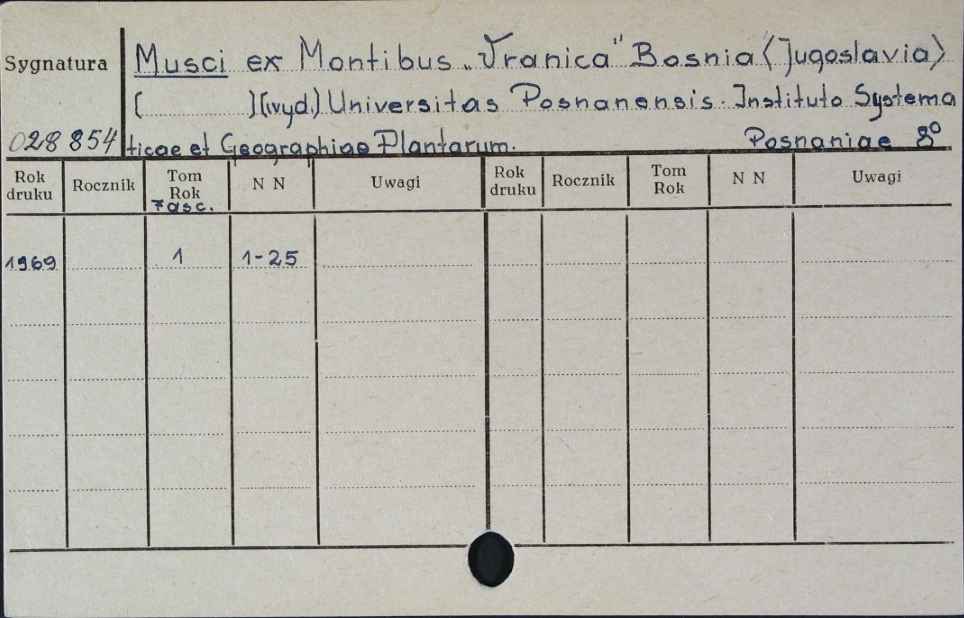 Sygnatura
Musci ex Montibus „Vranica" Bosnia (Jugoslavia)
[ ] [wyd.] Universitas Posnanensis. Instituto Systema
028 854 ticae et Geographiae Plantarum. Posnaniae 8°
Rok druku Rocznik Tom Rok Fasc. N N Uwagi Rok druku Rocznik Tom Rok N N Uwagi
1969 1 1-25